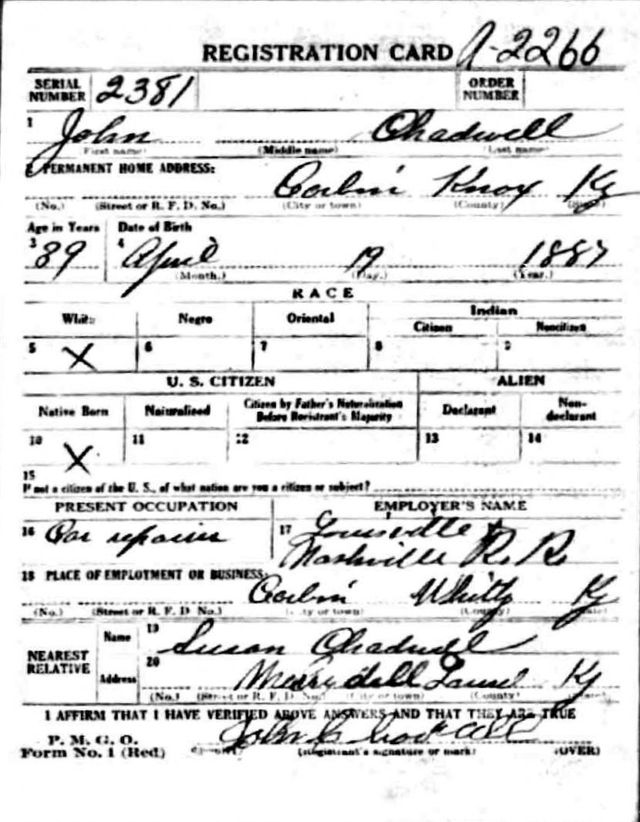 REGISTRATION CARD A-2266
SERIAL NUMBER 2381 ORDER NUMBER
1 John Chadwell
First name) (Middle name) (Last name)
2 PERMANENT HOME ADDRESS:
Corbin Knox Ky
(No.) (Street or R. F. D. No.) (City or town) (County) (State)
Age in Years Date of Birth
3 39 4 April 19 1887
(Month.) (Day.) (Year.)
RACE
White Negro Oriental Indian
Citizen Noncitizen
5 X 6 7 8 9
U. S. CITIZEN ALIEN
Native Born Naturalized Citizen by Father's Naturalization Before Registrant's Majority Declarant Non-declarant
10 X 11 12 13 14
15
If not a citizen of the U. S., of what nation are you a citizen or subject?
PRESENT OCCUPATION EMPLOYER'S NAME
16 Car repairer 17 Louisville &
Nashville R. R.
18 PLACE OF EMPLOYMENT OR BUSINESS:
Corbin Whitly Ky
(No.) (Street or R. F. D No.) (City or town) (County) (State)
NEAREST RELATIVE
Name 19 Susan Chadwell
Address 20 Laurel Ky
(No.) (Street or R. F. D. No.) (City or town) (County) (State)
I AFFIRM THAT I HAVE VERIFIED ABOVE ANSWERS AND THAT THEY ARE TRUE
P. M. G. O.
Form No. 1 (Red) John Chadwell
(Registrant's signature or mark) (OVER)